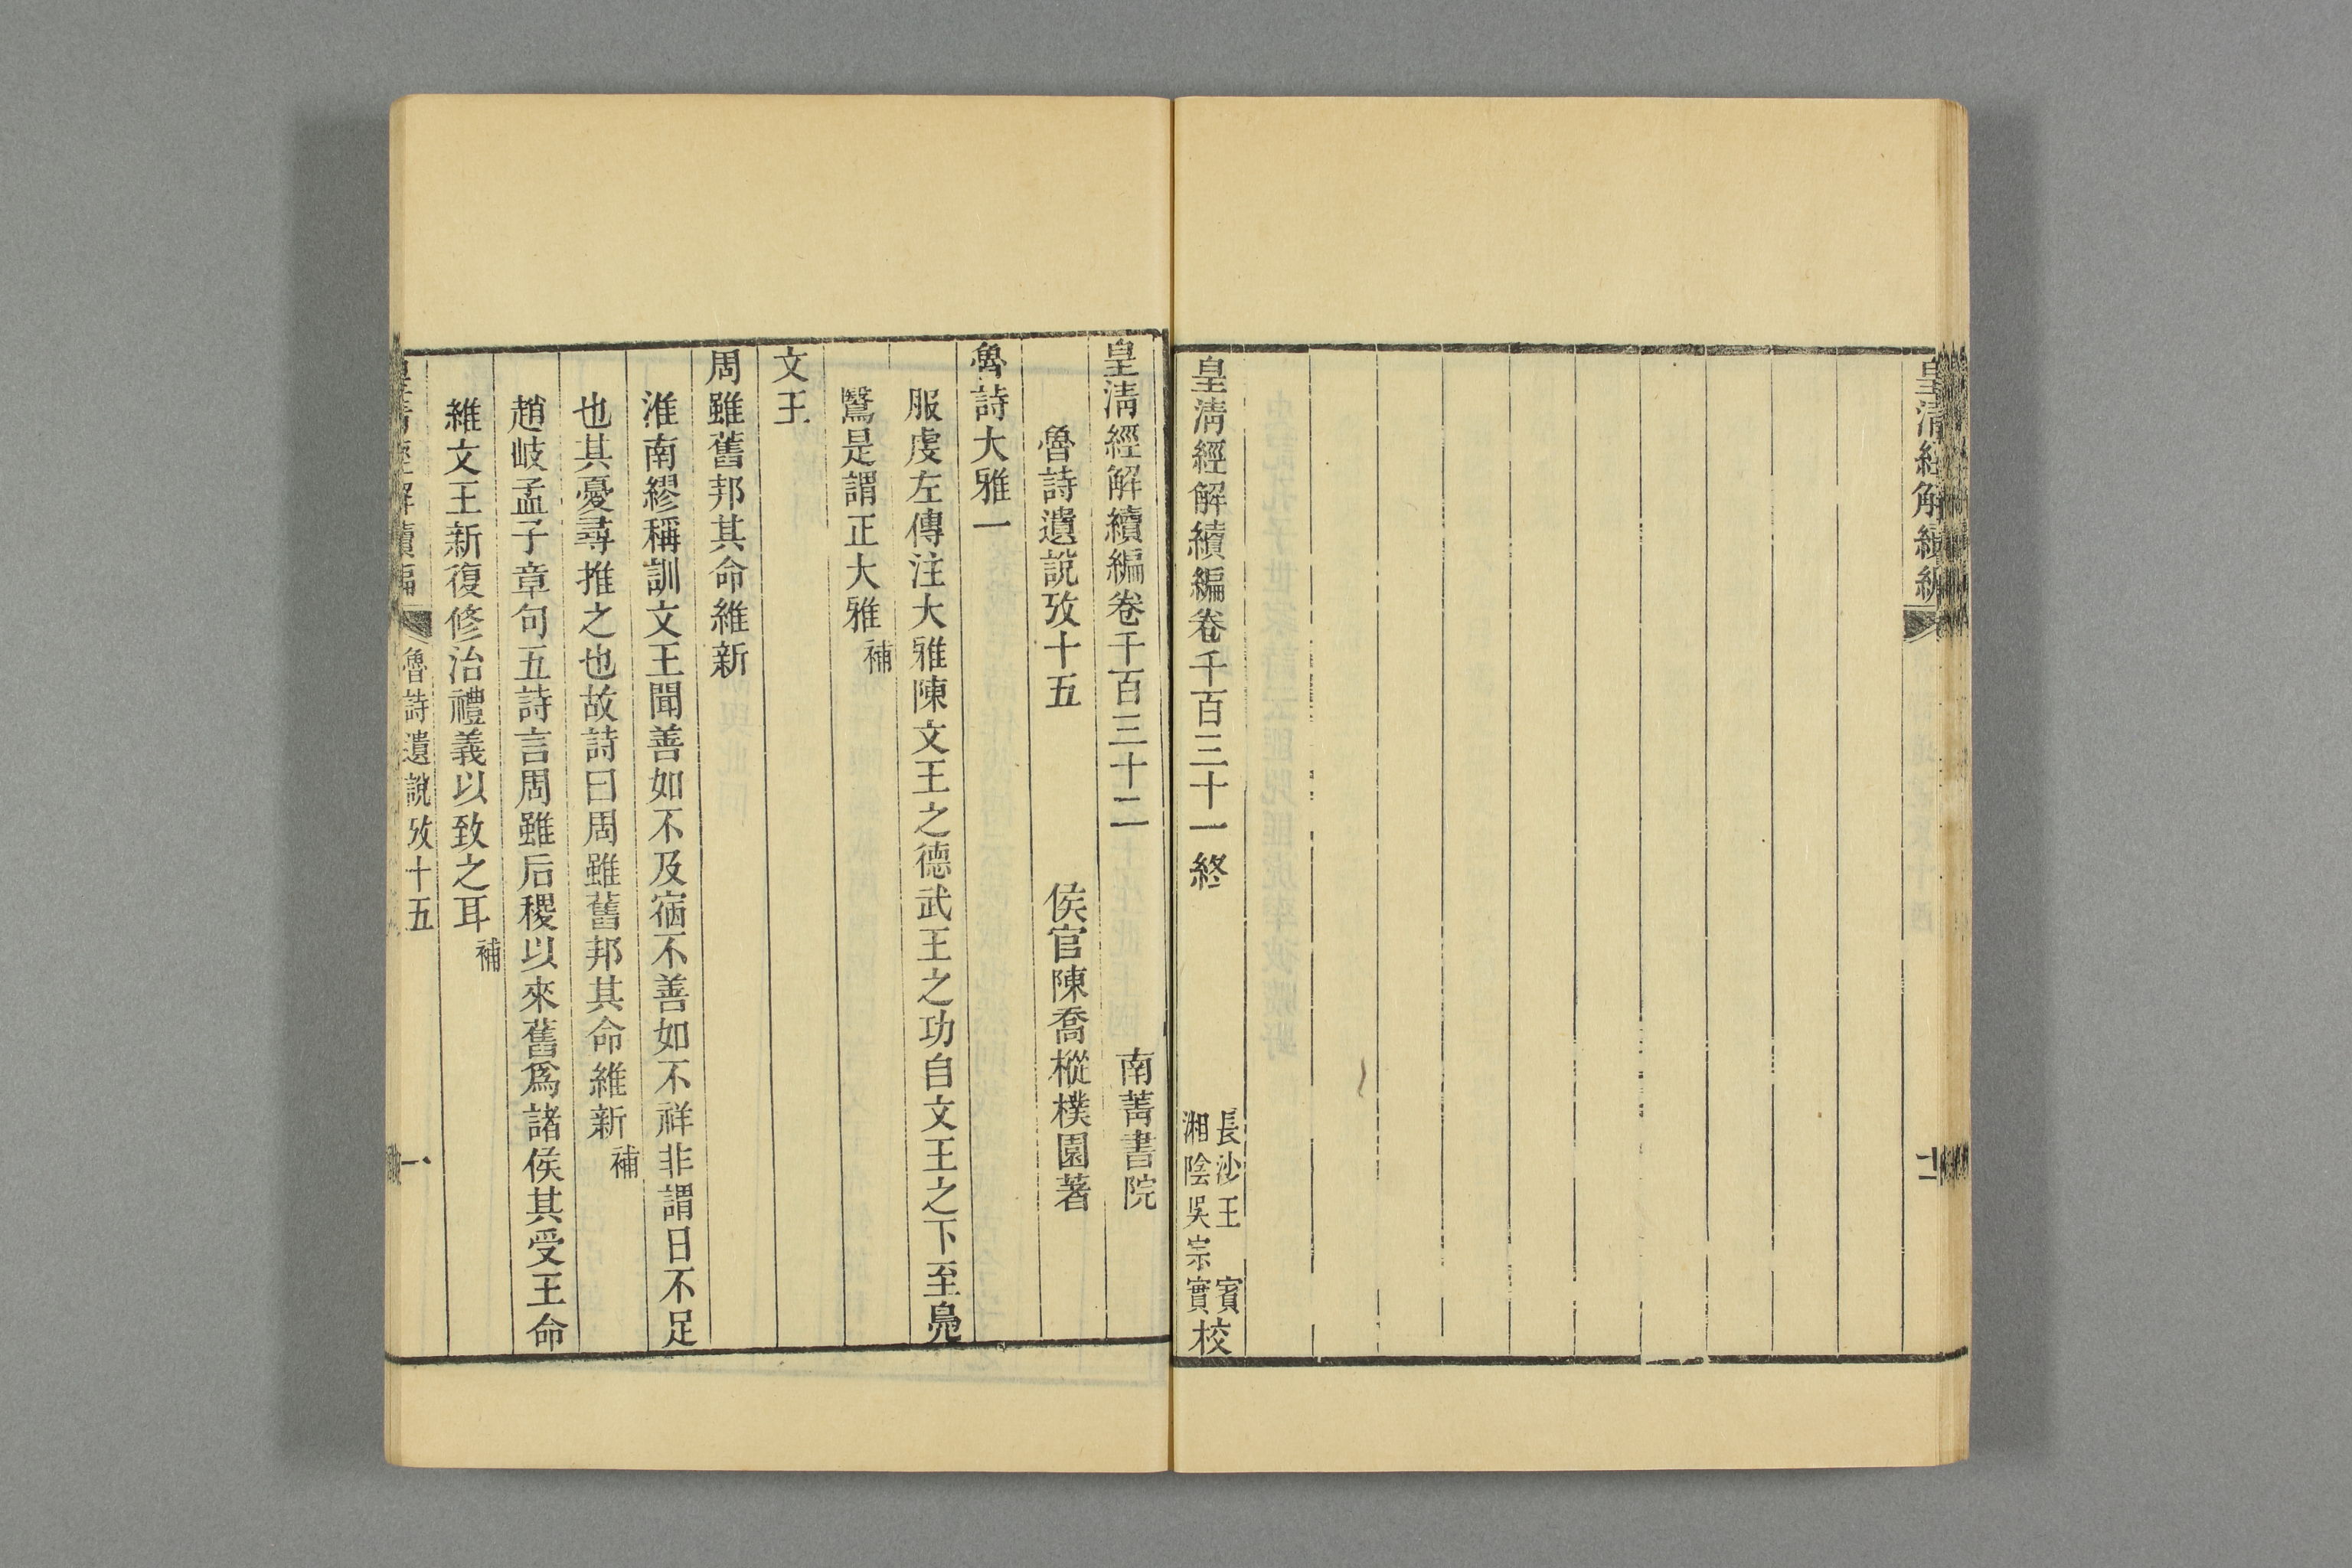 皇清經解續編
皇清經解續編卷千百三十一終
長沙王 賓
湘陰吳宗實校
皇清經解續編卷千百三十二 南菁書院
魯詩遺說攷十五 侯官陳喬樅樸園著
魯詩大雅一
服虔左傳注大雅陳文王之德武王之功自文王之下至鳧
鷖是謂正大雅補
文王
周雖舊邦其命維新
淮南繆稱訓文王聞善如不及宿不善如不祥非謂日不足
也其憂尋推之也故詩曰周雖舊邦其命維新補
趙岐孟子章句五詩言周雖后稷以來舊爲諸侯其受王命
維文王新復修治禮義以致之耳補
皇清經解續編 魯詩遺說攷十五 一